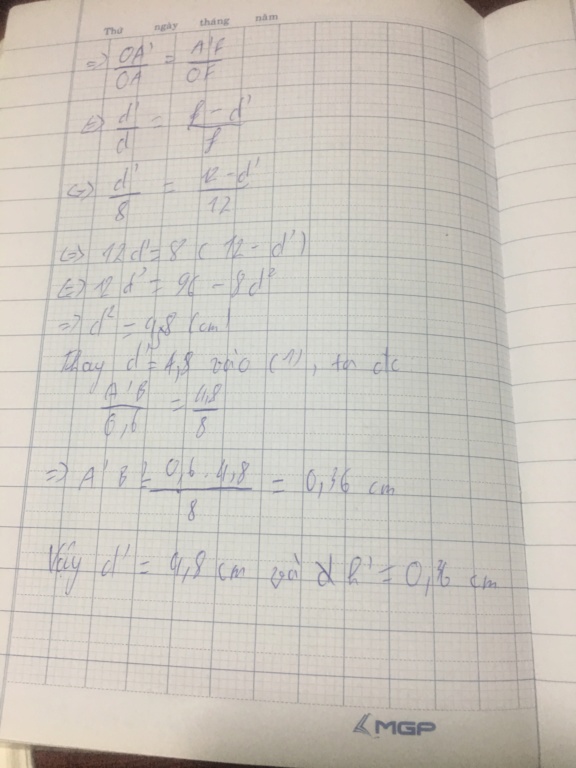 Thứ ngày tháng năm
=> OA'/OA = A'F/OF
<=> d'/d = f - d'/f
<=> d'/8 = 12 - d'/12
<=> 12d' = 8 ( 12 - d' )
<=> 12d' = 96 - 8d'
=> d' = 4,8 (cm)
Thay d' = 4,8 vào (1), ta đc
A'B'/0,6 = 4,8/8
=> A'B' = 0,6 . 4,8/8 = 0,36 cm
Vậy d' = 4,8 cm và h' = 0,36 cm
MGP